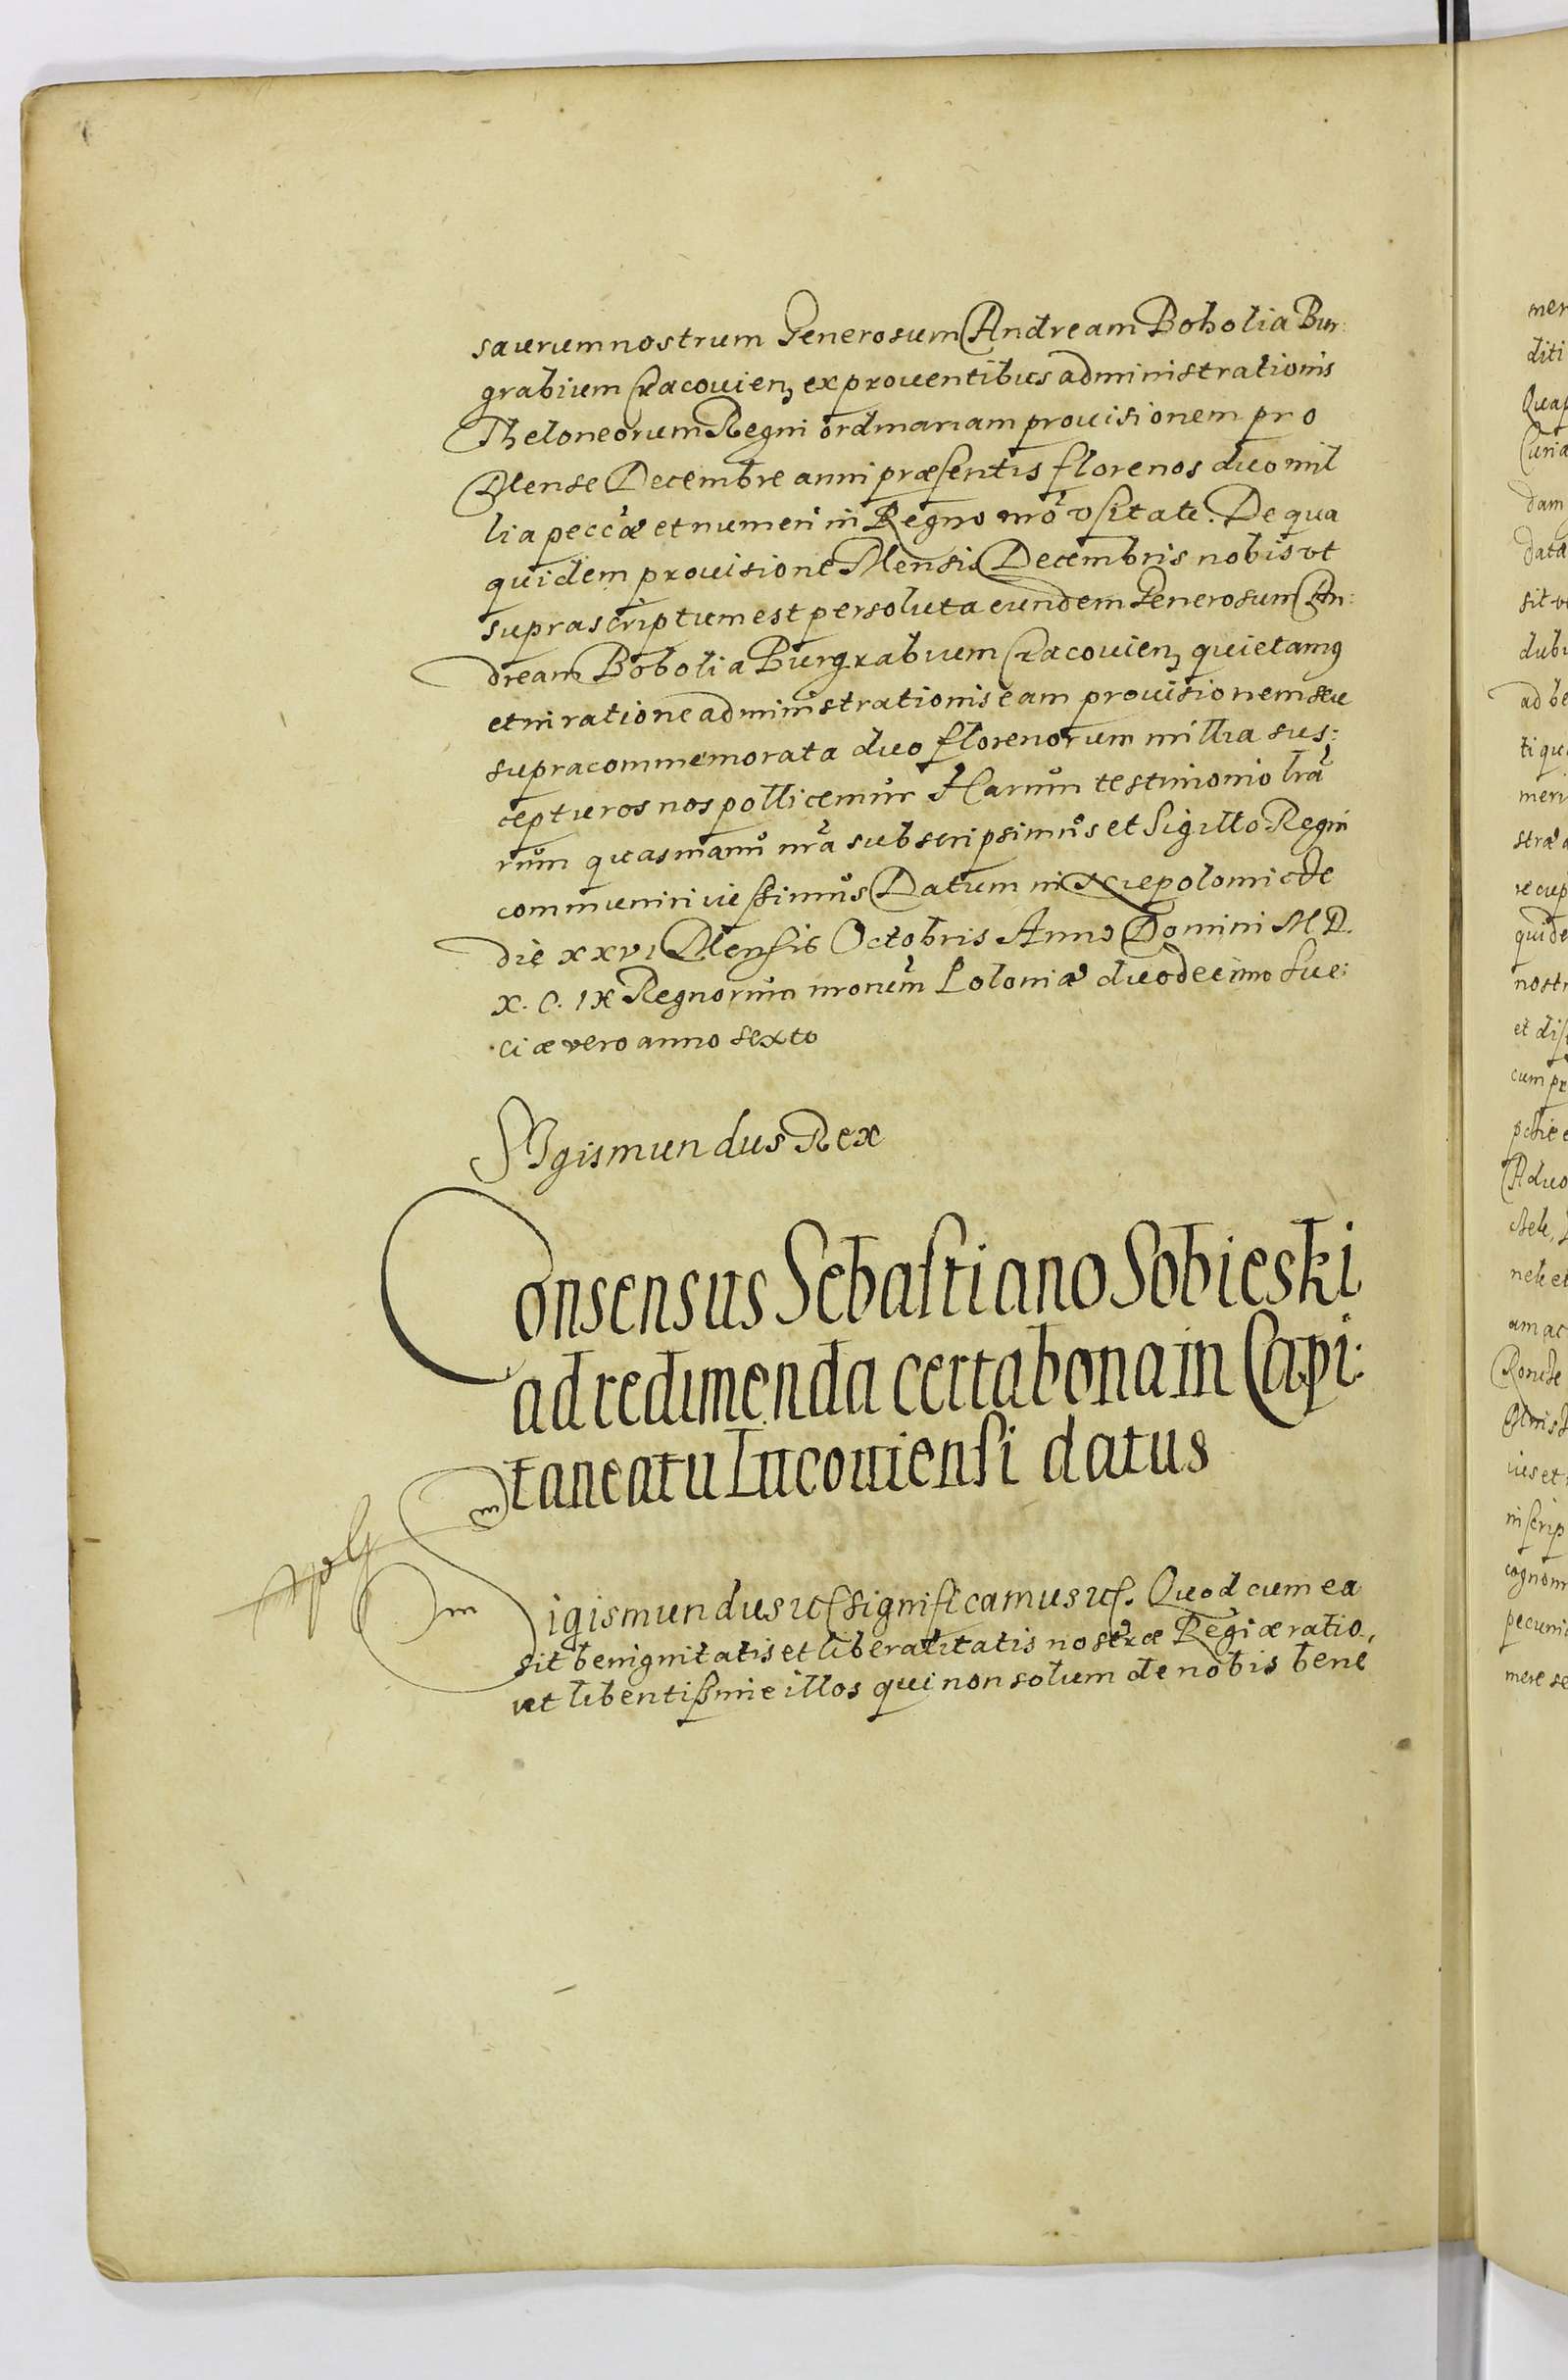 saurum nostrum Generosum Andream Bobolia Bur:
grabium Cracouien, ex prouentibus administrationis
Theloneorum Regni ordinariam prouisionem pro
Mense Decembre anni præsentis florenos duo mil
lia peccæ et numeri in Regno nro vsitati. De qua
quidem prouisione Mensis Decembris nobis vt
suprascriptum est persoluta eundem Generosum An:
dream Bobolia Burgrabium Cracouien, quietamus
et in ratione administrationis eam prouisionem seu
supracommemorata duo florenorum millia sus:
cepturos nos pollicemur Harum testimonio lra
rum quas manu nra subscripsimus et Sigillo Regni
communiri iussimus Datum in Niepolomicze
die xxvi Mensis Octobris Anno Domini M D.
X. C. IX Regnorum nrorum Poloniæ duodecimo Sue:
ciæ vero anno sexto
Sigismundus Rex
Consensus Sebastiano Sobieski
ad redimenda certa bona in Capi:
taneatu Lucouiensi datus
Sigismundus etc significamus etc. Quod cum ea
sit benignitatis et liberalitatis nostræ Regiæ ratio,
vt libentissime illos qui non solum de nobis bene
mer
diti
Quap
Curia
dam
data
sit v
dubi
ad be
ti qu
meri
stræ a
recup
quide
nostr
et dis
cum pr
Aduo
nele et
am ac
ues et
inscrip
cognom
pecuni
mere se